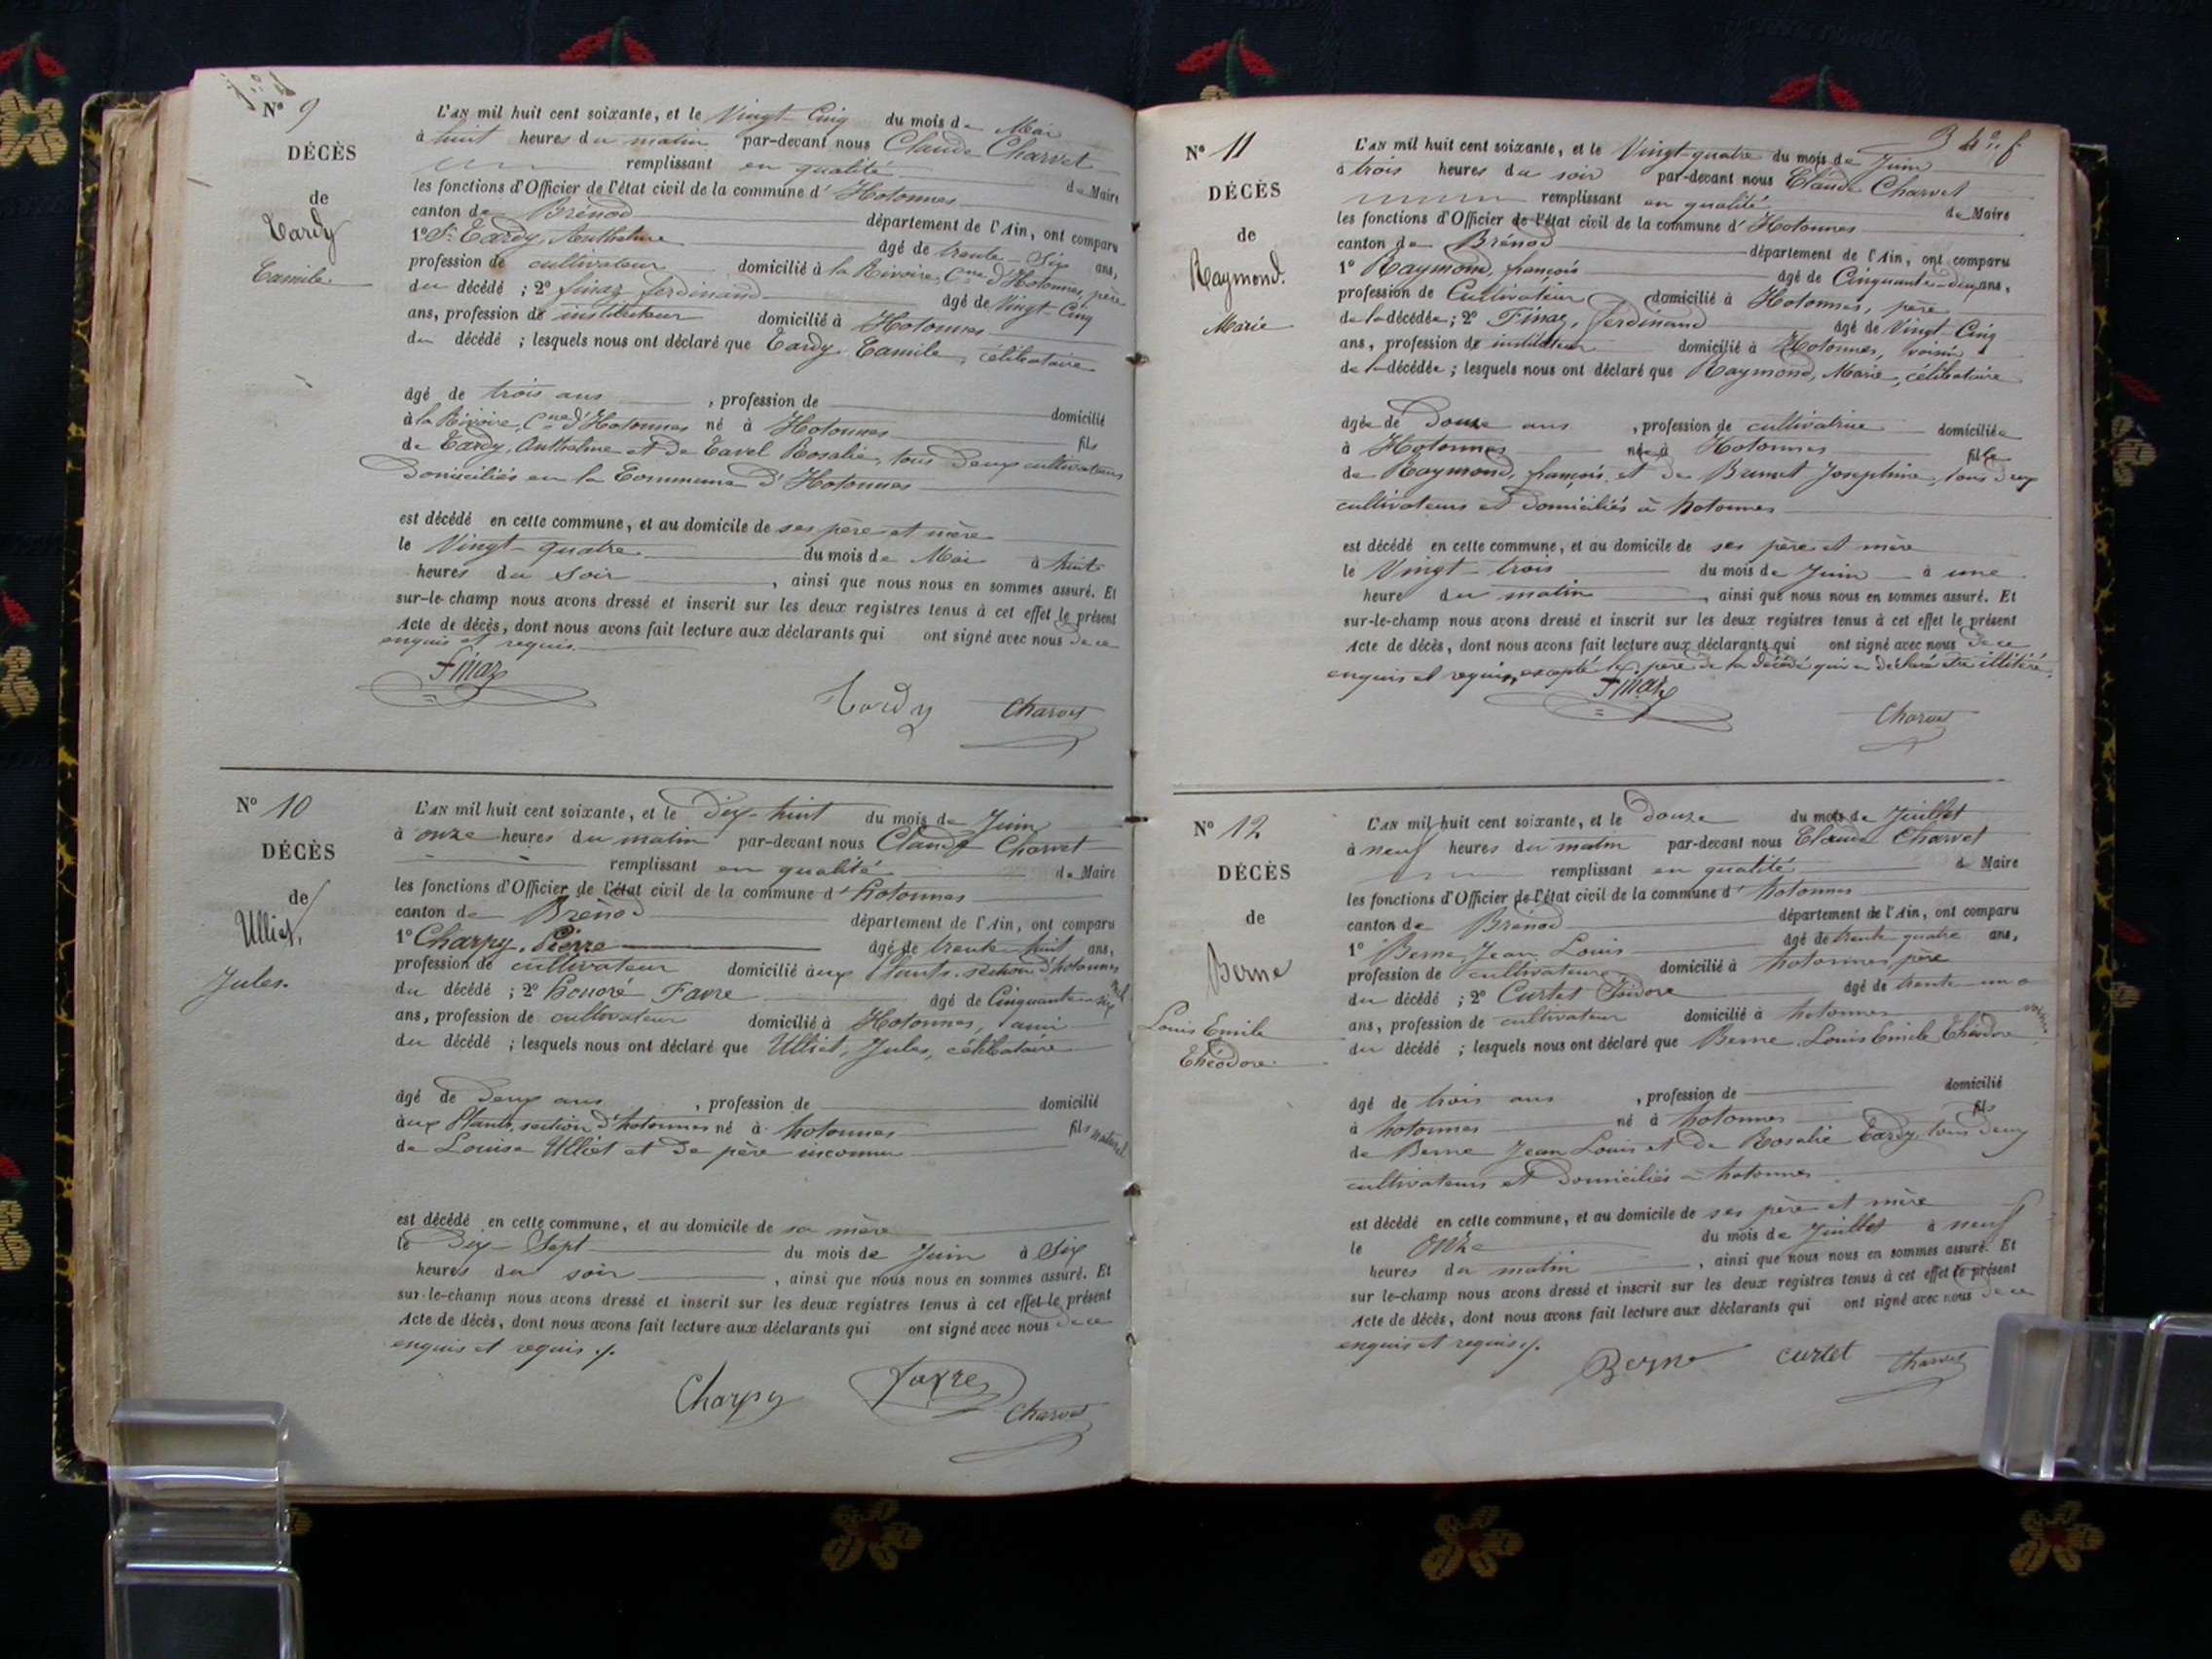 N° 9
DÉCÈS
de
Tardy
Camile
L'AN mil huit cent soixante, et le Vingt-Cinq du mois de Mai
à huit heures du matin par-devant nous Claude Charvet
remplissant en qualité de Maire
les fonctions d'Officier de l'état civil de la commune d'Hotonnes
canton de Brénod département de l'Ain, ont comparu
1° Sr. Tardy, Anthelme âgé de trente-Six ans,
profession de cultivateur domicilié à la Rivoire, Cne d'Hotonnes, père
du décédé ; 2° finaz ferdinand âgé de Vingt-Cinq
ans, profession de instituteur domicilié à Hotonnes
du décédé ; lesquels nous ont déclaré que Tardy Camile, célibataire
âgé de trois ans , profession de domicilié
à la Rivoire, Cne d'Hotonnes né à Hotonnes fils
de Tardy, Anthelme et de Tavel Rosalie, tous deux cultivateurs
domiciliés en la Commune d'Hotonnes
est décédé en cette commune, et au domicile de ses père et mère
le Vingt-quatre du mois de Mai à huit
heures du soir , ainsi que nous nous en sommes assuré. Et
sur-le-champ nous avons dressé et inscrit sur les deux registres tenus à cet effet le présent
Acte de décès, dont nous avons fait lecture aux déclarants qui ont signé avec nous de ce
enquis et requis.
Finaz
Tardy Charvet
N° 10
DÉCÈS
de
Ulliet,
Jules.
L'AN mil huit cent soixante, et le Dix-huit du mois de Juin
à onze heures du matin par-devant nous Claude Charvet
remplissant en qualité de Maire
les fonctions d'Officier de l'état civil de la commune d'hotonnes
canton de Brénod département de l'Ain, ont comparu
1° Charpy, Pierre âgé de trente huit ans,
profession de cultivateur domicilié aux Plants, section d'hotonnes
du décédé ; 2° honoré Favre âgé de Cinquante-six
ans, profession de cultivateur domicilié à Hotonnes, ami
du décédé ; lesquels nous ont déclaré que Ulliet, Jules, célibataire
âgé de Deux ans , profession de domicilié
aux Plants, section d'hotonnes né à hotonnes fils naturel
de Louise Ulliet et de père inconnu
est décédé en cette commune, et au domicile de sa mère
le Dix-Sept du mois de Juin à Six
heures du soir , ainsi que nous nous en sommes assuré. Et
sur-le-champ nous avons dressé et inscrit sur les deux registres tenus à cet effet le présent
Acte de décès, dont nous avons fait lecture aux déclarants qui ont signé avec nous de ce
enquis et requis ./.
Charpy Favre
Charvet
N° 11
DÉCÈS
de
Raymond.
Marie
L'AN mil huit cent soixante, et le Vingt-quatre du mois de Juin
à trois heures du soir par-devant nous Claude Charvet
remplissant en qualité de Maire
les fonctions d'Officier de l'état civil de la commune d'Hotonnes
canton de Brénod département de l'Ain, ont comparu
1° Raymond, françois âgé de Cinquante-deux ans,
profession de Cultivateur domicilié à Hotonnes, père
de la décédée ; 2° Finaz, ferdinand âgé de Vingt-Cinq
ans, profession de instituteur domicilié à Hotonnes, voisin
de la décédée ; lesquels nous ont déclaré que Raymond, Marie, célibataire
âgée de Douze ans , profession de cultivatrice domiciliée
à Hotonnes née à Hotonnes fille
de Raymond, françois et de Brunet Josephine, tous deux
cultivateurs et domiciliés à hotonnes
est décédé en cette commune, et au domicile de ses père et mère
le Vingt-trois du mois de Juin à une
heure du matin , ainsi que nous nous en sommes assuré. Et
sur-le-champ nous avons dressé et inscrit sur les deux registres tenus à cet effet le présent
Acte de décès, dont nous avons fait lecture aux déclarants qui ont signé avec nous de ce
enquis et requis, excepté le père de la décédée qui a déclaré être illitéré.
Finaz
Charvet
N° 12
DÉCÈS
de
Berne
Louis Emile
Théodore
L'AN mil huit cent soixante, et le douze du mois de Juillet
à neuf heures du matin par-devant nous Claude Charvet
remplissant en qualité de Maire
les fonctions d'Officier de l'état civil de la commune d'hotonnes
canton de Brénod département de l'Ain, ont comparu
1° Berne, Jean Louis âgé de trente quatre ans,
profession de cultivateur domicilié à hotonnes, père
du décédé ; 2° Curtet Isidore âgé de trente-un
ans, profession de cultivateur domicilié à hotonnes voisin
du décédé ; lesquels nous ont déclaré que Berne Louis Emile Théodore
âgé de trois ans , profession de domicilié
à hotonnes né à hotonnes fils
de Berne Jean Louis et de Rosalie Tardy, tous deux
cultivateurs et domiciliés à hotonnes
est décédé en cette commune, et au domicile de ses père et mère
le Onze du mois de Juillet à neuf
heures du matin , ainsi que nous nous en sommes assuré. Et
sur le-champ nous avons dressé et inscrit sur les deux registres tenus à cet effet le présent
Acte de décès, dont nous avons fait lecture aux déclarants qui ont signé avec nous de ce
enquis et requis ./.
Berne curtet Charvet